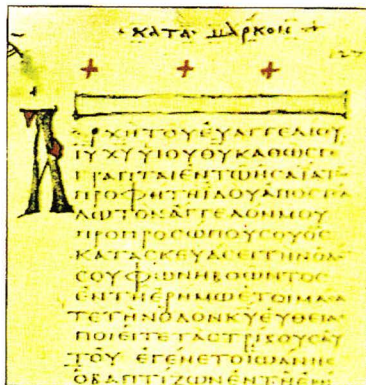 ΚΑΤΑ ΜΑΡΚΟΝ
127
ΑΡΧΗ ΤΟΥ ΕΥΑΓΓΕΛΙΟΥ
ΙΥ ΧΥ ΥΙΟΥ ΘΥ ΚΑΘΩϹ
ΓΡΑΠΤΑΙ ΕΝ ΤΩ ΗϹΑΙΑ
ΠΡΟΦΗΤΗ ΙΔΟΥ ΑΠΟϹΤΕ
ΛΩ ΤΟΝ ΑΓΓΕΛΟΝ ΜΟΥ
ΠΡΟ ΠΡΟϹΩΠΟΥ ϹΟΥ ΟϹ
ΚΑΤΑϹΚΕΥΑϹΕΙ ΤΗΝ ΟΔΟ
ϹΟΥ ΦΩΝΗ ΒΟΩΝΤΟϹ
ΕΝ ΤΗ ΕΡΗΜΩ ΕΤΟΙΜΑϹΑ
ΤΕ ΤΗΝ ΟΔΟΝ ΚΥ ΕΥΘΕΙΑ
ΠΟΙΕΙΤΕ ΤΑϹ ΤΡΙΒΟΥϹ ΑΥ
ΤΟΥ ΕΓΕΝΕΤΟ ΙΩΑΝΗϹ
Ο ΒΑΠΤΙΖΩΝ ΕΝ ΤΗ